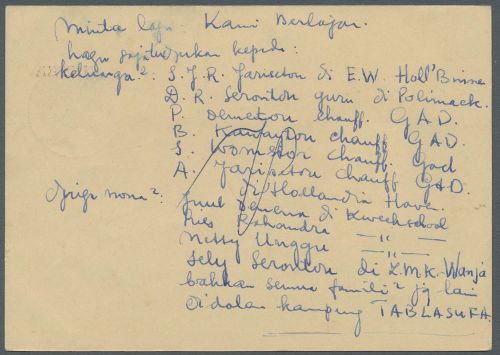 minta lagu Kami Berlajar.
hagu saja tudjukan kepada:
keluarga²: S.J.R. Jarisetou di E.W. Holl'Binne
D.R. Serontou guru di Polimack.
P. Demetou chauff. GAD.
B. Kawaytou chauff GAD.
S. Womsiwor chauff. Gad
A. Jarisetou chauff GAD.
di Hollandia Haven.
djuga nona²: Juul Danena di Kweekschool
Ries —,,—
Netty Unggu —,,—
Sely Serontou di L.M.K. Wanja
bahkan semua famili² jg lain
didalam kampung TABLASUFA.